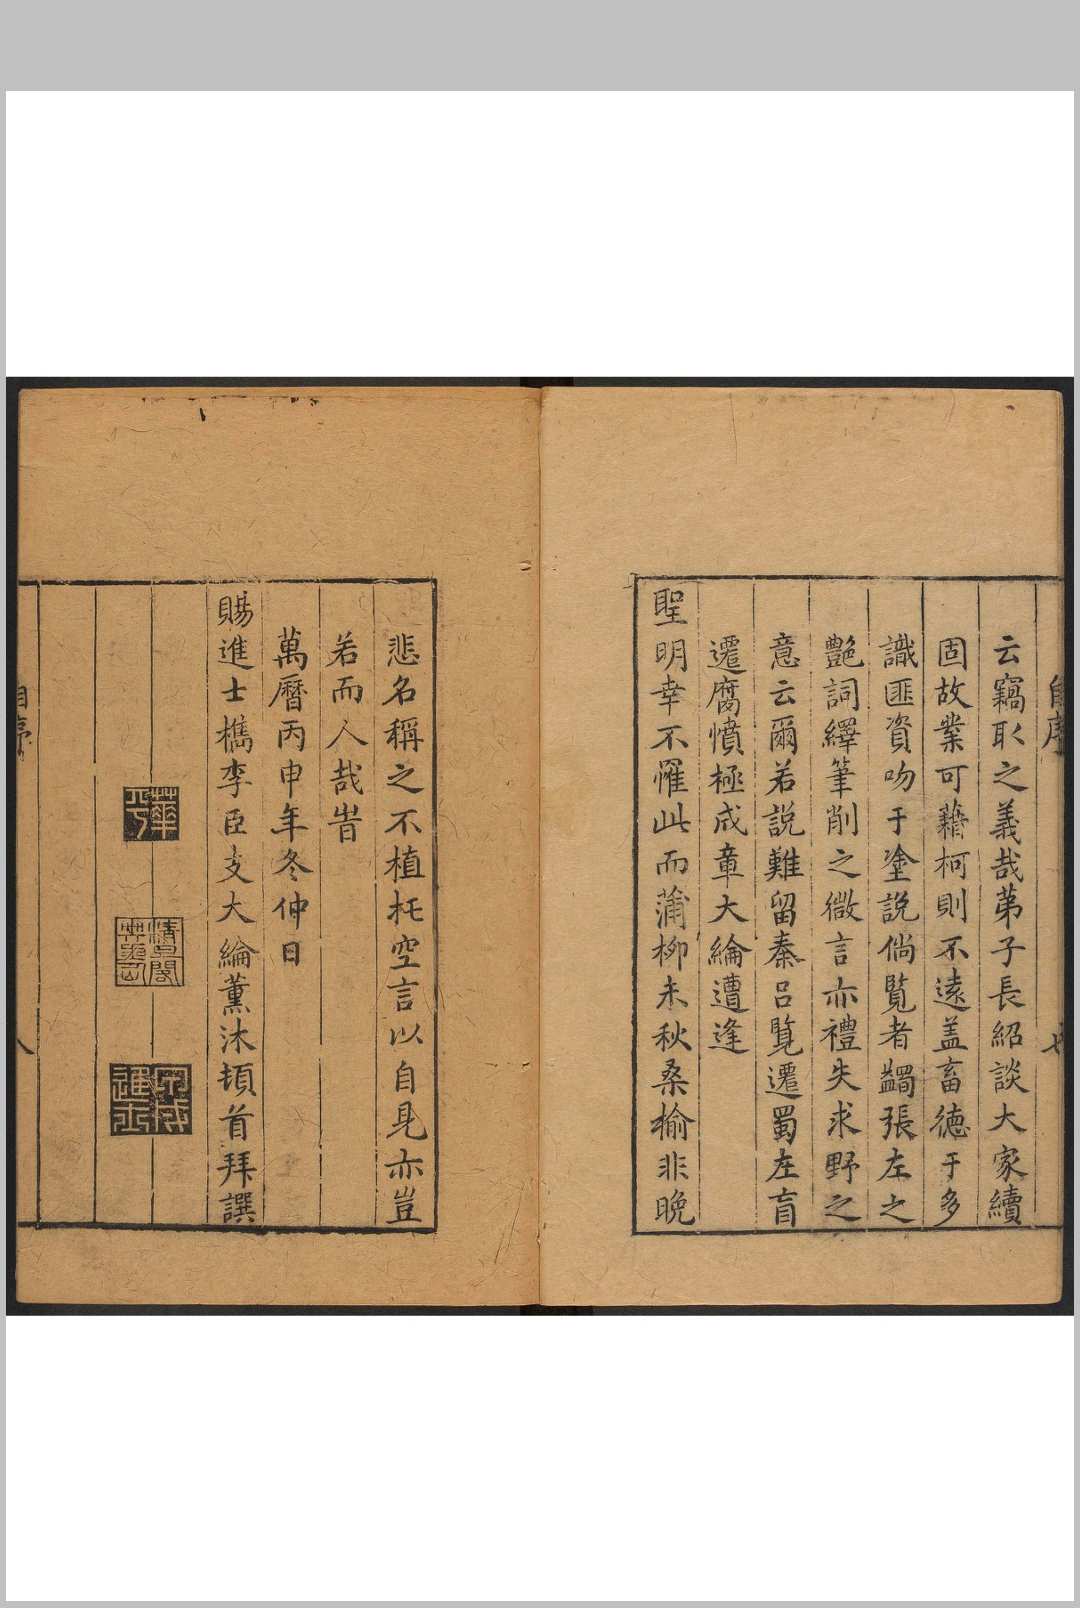 自序
云竊取之義哉苐子長紹談大家續
固故業可藉柯則不遠盖畜德于多
識匪資吻于塗說倘覽者蠲張左之
艶詞繹筆削之微言亦禮失求野之
意云爾若說難留秦呂覽遷蜀左盲
遷腐憤極成章大綸遭逢
聖明幸不罹此而蒲柳未秋桑榆非晚
悲名稱之不植托空言以自見亦豈
若而人哉旹
萬曆丙申年冬仲日
賜進士檇李臣支大綸薰沐頓首拜譔
自序
八